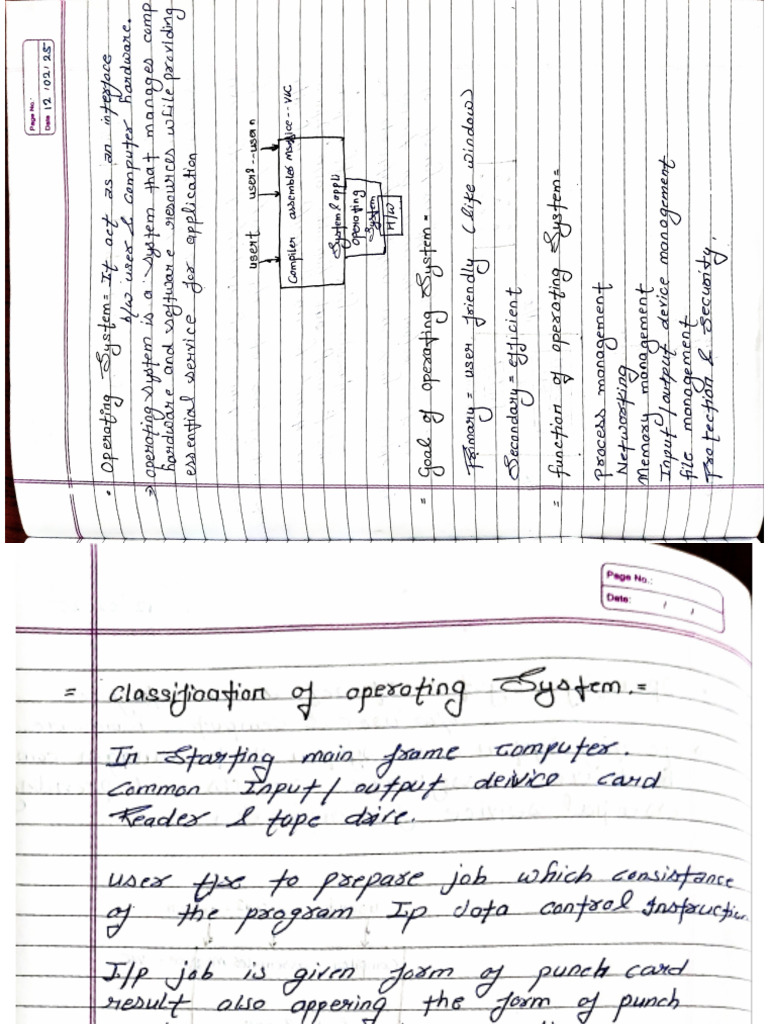 Page No.:
Date 12/02/25
• Operating System = It act as an interface
b/w user & computer hardware.
→ operating system is a system that manages comp
hardware and software resources while providing
essential service for application
user1 user2 -- user n
Compiler assembler -- VLC
System & appli
operating
System
H/W
= Goal of operating System =
Primary = user friendly (like window)
Secondary = efficient
= function of operating System =
Process management
Networking
Memory management
Input/output device management
file management
Protection & Security.
Page No.:
Date: / /
= Classification of operating System. =
In Starting main frame computer.
Common Input/output deivice card
Reader & tape drive.
user use to prepare job which consistance
of the program Ip data control Instruction
I/p job is given form of punch card
result also appering the form of punch